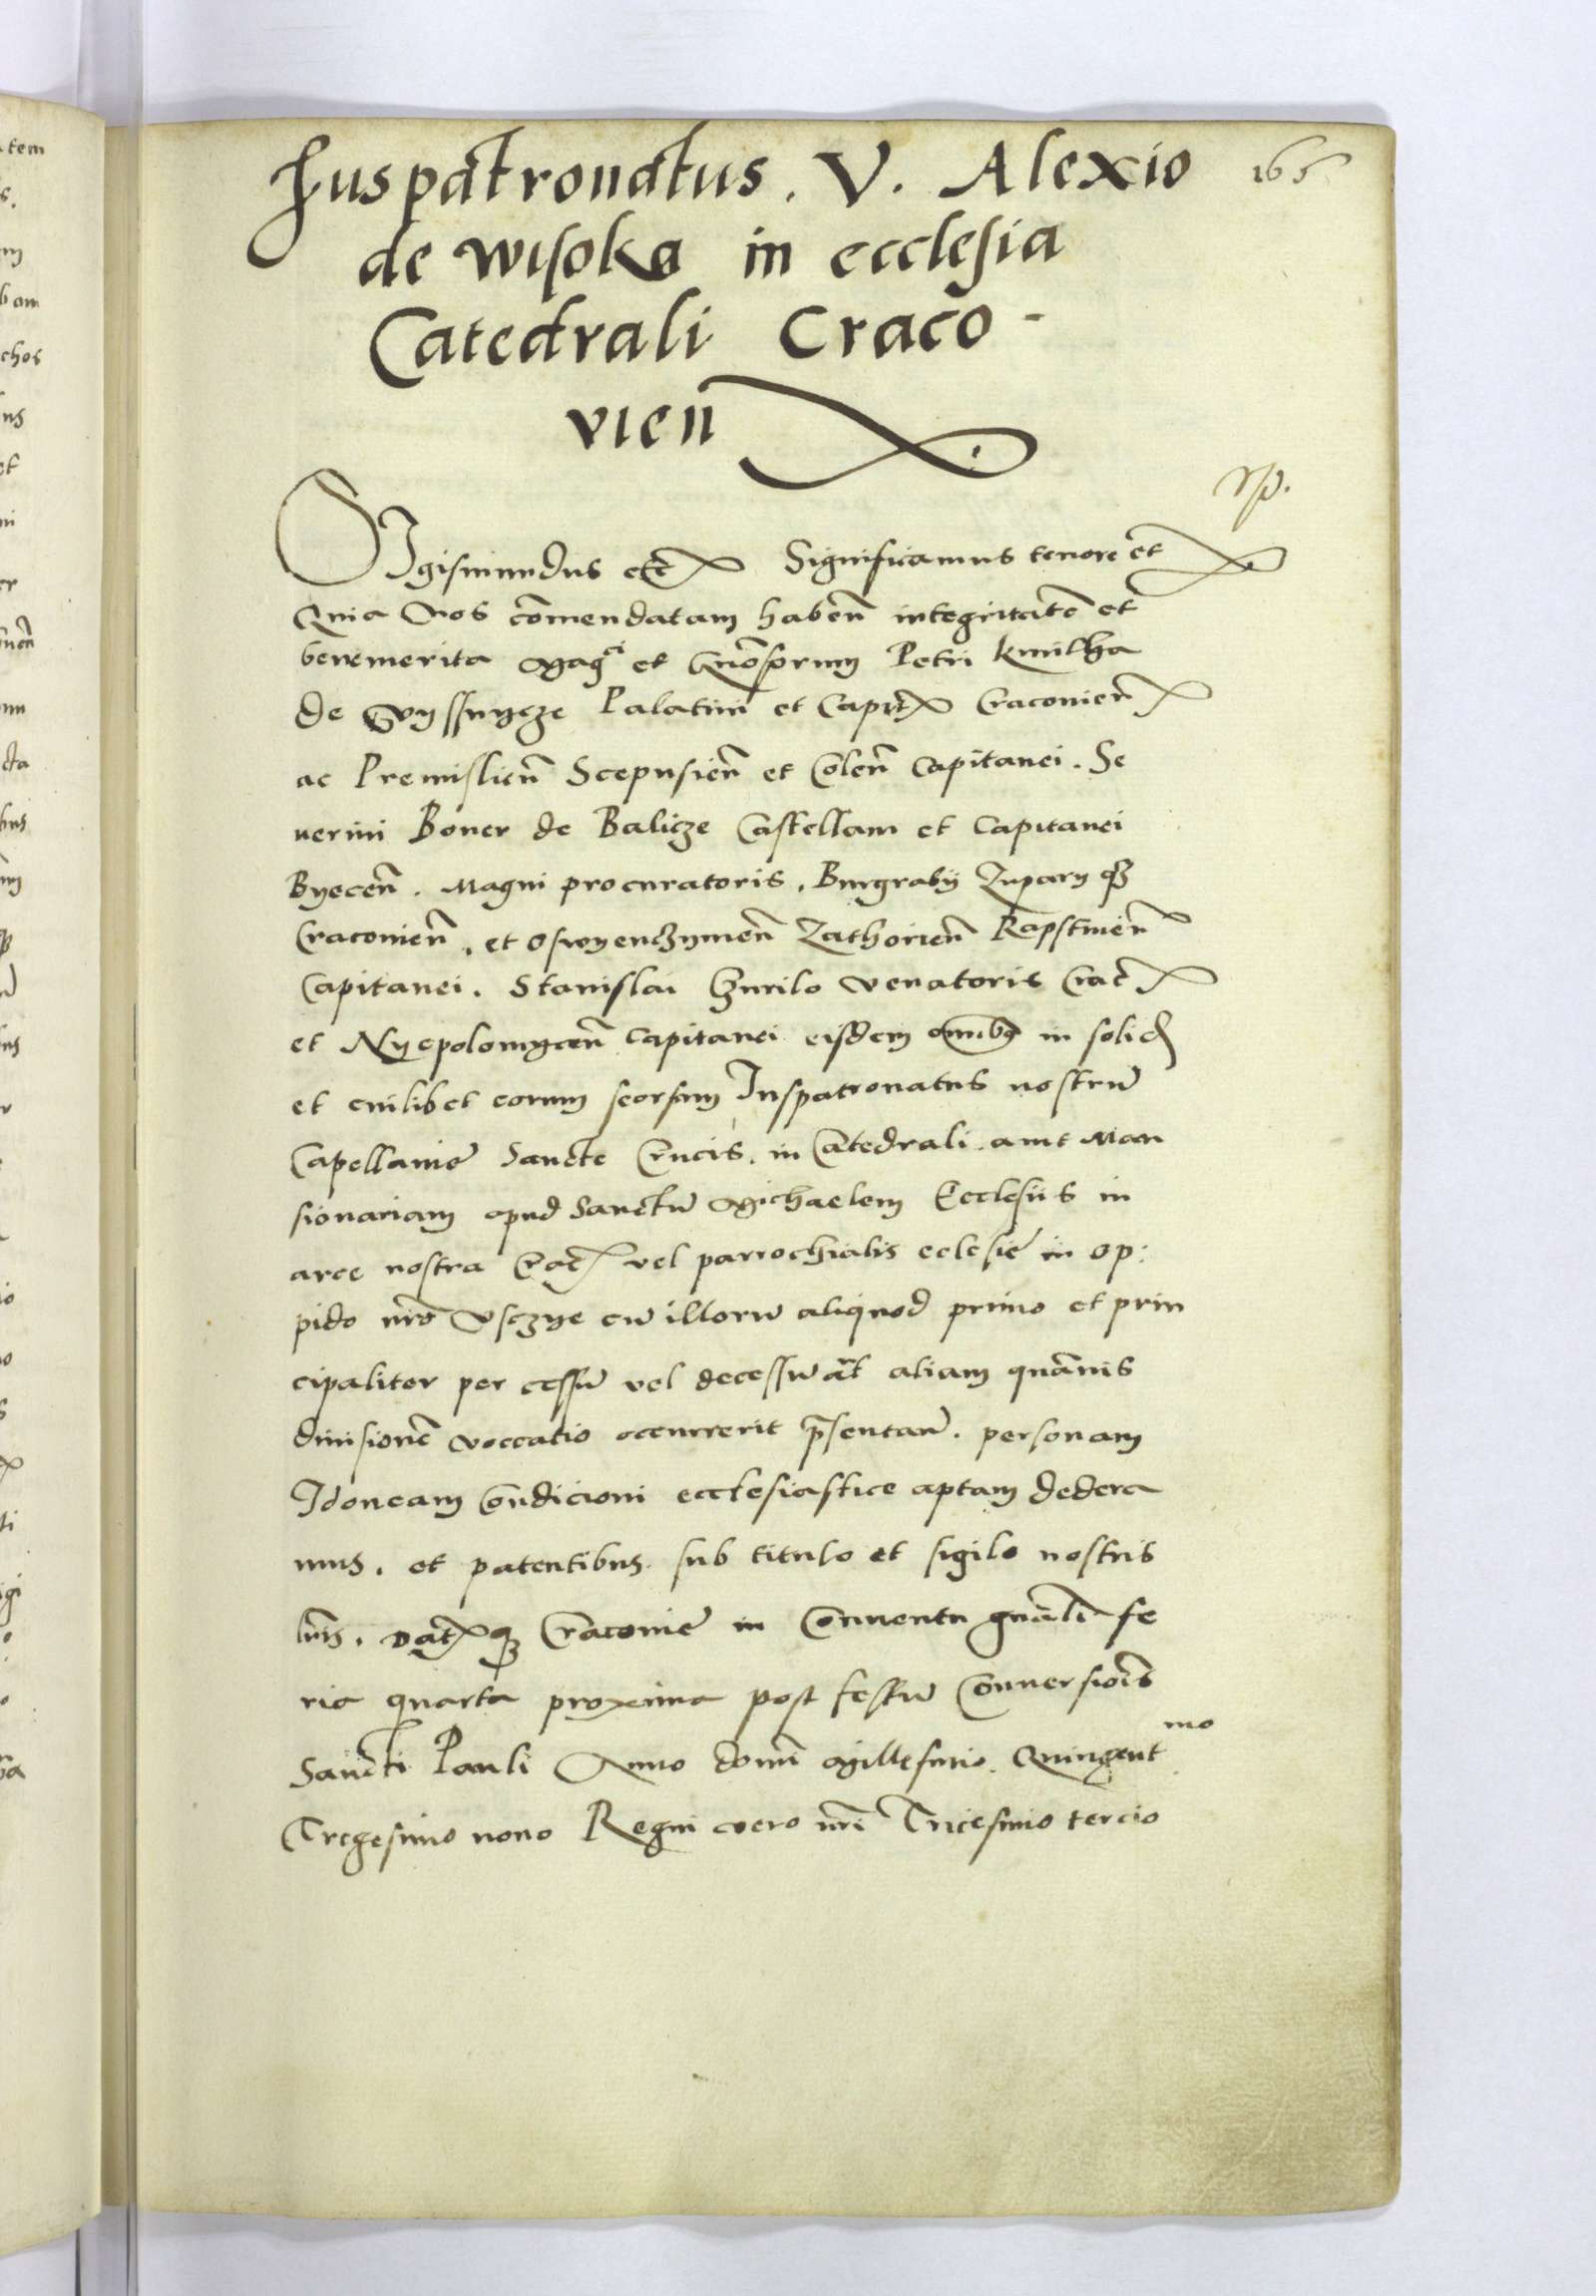 Iuspatronatus. V. Alexio 165
de wisoka in ecclesia
Catedrali Craco-
vien̄
Sigismundus etc̄ Significamus tenore et
Quia Nos cōmendatam haben̄ integritatē et
benemerita Mag^ci et Gn̄osorum Petri kmitha
de Vyssnycze Palatini et Capit Cracouien̄
ac Premislien̄ Scepusien̄ et Colen̄ Capitanei. Se
uerini Boner de Balicze Castellani et Capitanei
Byecen̄. Magni procuratoris. Burgrabij Zuparij qꝫ
Cracouien̄. et Osvyenczymen̄ Zathorien̄ Rapstinen̄
Capitanei. Stanislai Czurilo Venatoris Crac̄
et Nyepolomycen̄ Capitanei eisdem omībꝰ in solid
et cuilibet eorum seorsum Iuspatronatus nostrū
Capellanie Sancte Crucis. in Catedrali. aut Man
sionariam apud Sanctū Michaelem Ecclesiis in
arce nostra Crac̄ vel parrochialis eclesie in op:
pido nr̄o Usczye cū illorū aliquod primo et prin
cipaliter per cessū vel decessū āt aliam quāuis
diuisionē voccatio occurrerit p̄sentan̄. personam
Idoneam Condicioni ecclesiastice aptam dedera
mus. et patentibus sub titulo et sigilo nostris
lr̄is. Dat qꝫ Cracouie in Conuentu gn̄ali fe
ria quarta proxima post festū Conuersiōis
Sancti Pauli Anno domī Millesimo. Quingent^mo
Tregesimo nono Regni vero nr̄i Tricesimo tercio